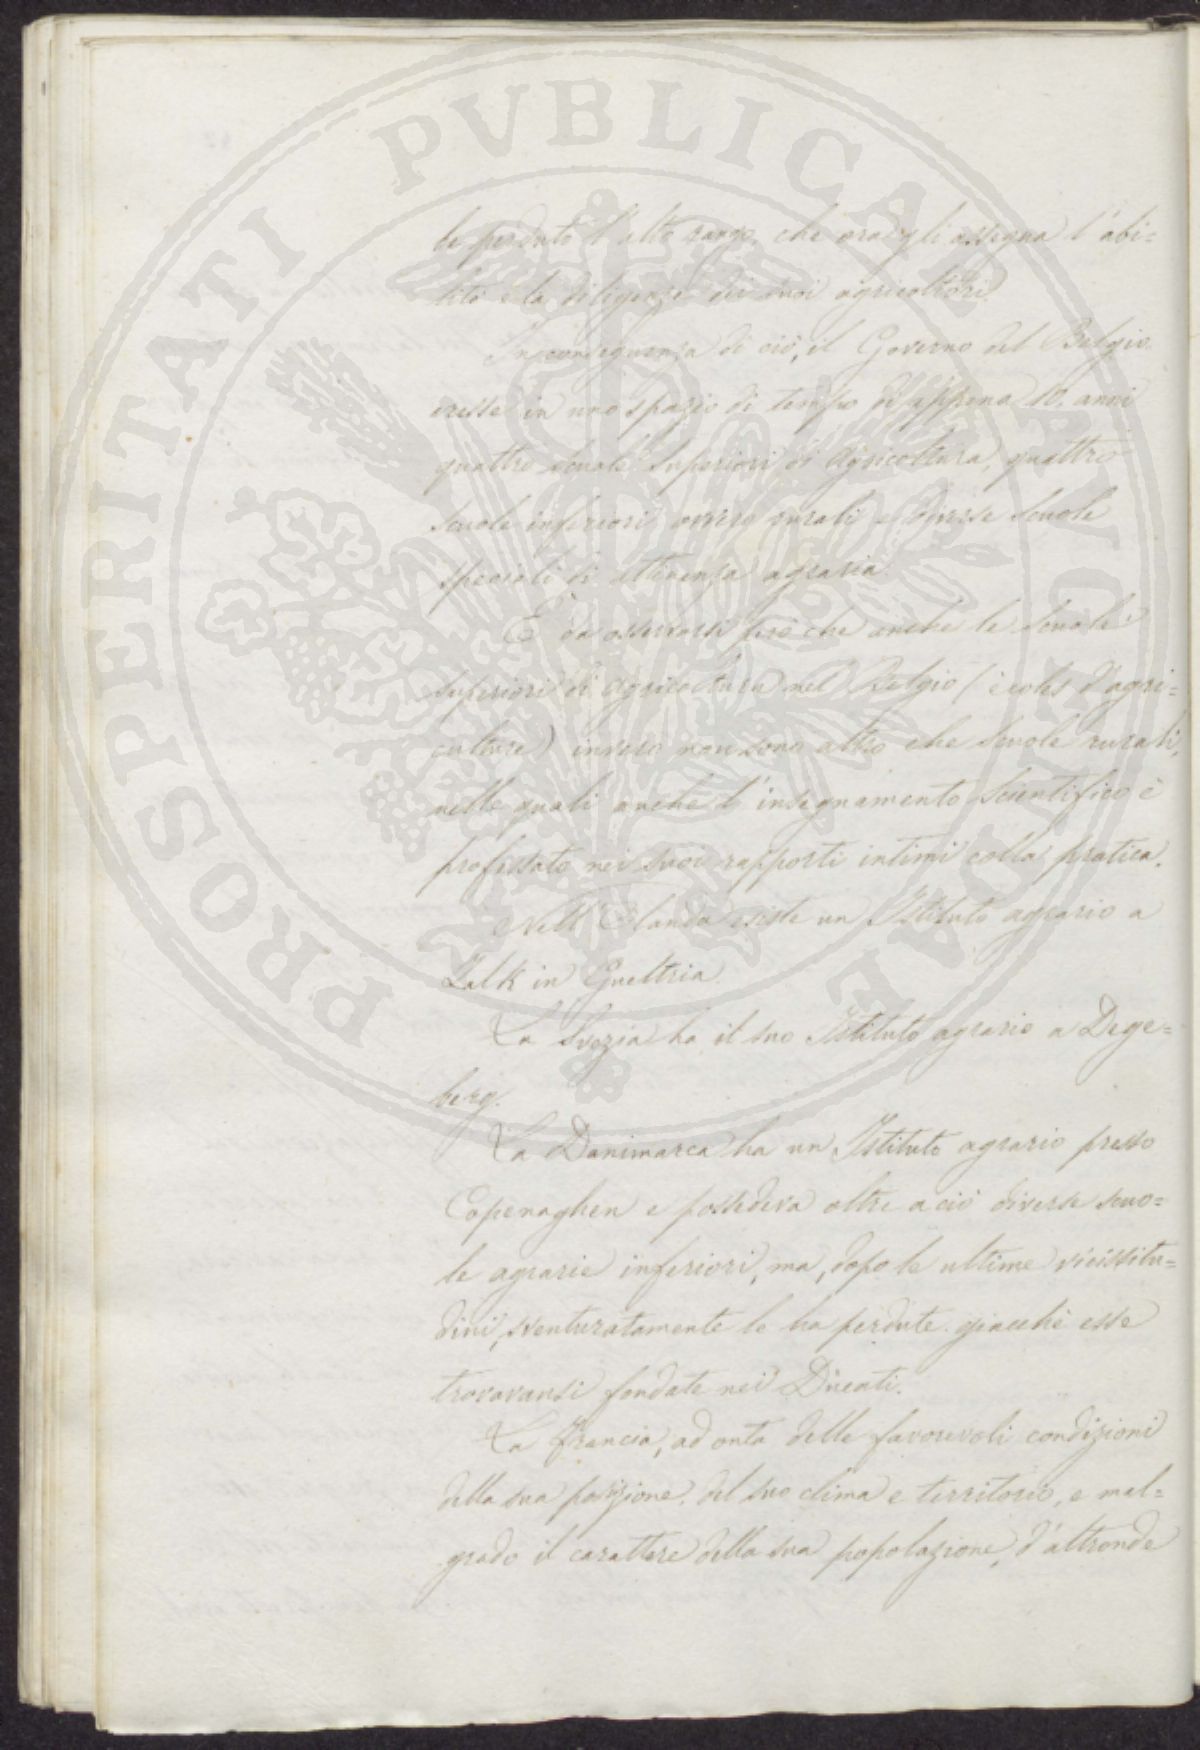 be perduto l'alto rango, che ora egli assegna l'abi=
lità e la diligenza dei suoi agricoltori.
In conseguenza di ciò, il Governo del Belgio
eresse in uno spazio di tempo di appena 10. anni
quattro scuole superiori di Agricoltura, quattro
scuole inferiori ovvero rurali e diverse scuole
speciali di attinenza agraria.
È da osservarsi però che anche le scuole
superiori di Agricoltura nel Belgio (ècoles d'agri=
culture) invero non sono altro che scuole rurali,
nelle quali anche l'insegnamento scientifico è
professato nei suoi rapporti intimi colla pratica.
Nell'Olanda esiste un Istituto agrario a
Zalk in Gueltria.
La Svezia ha il suo Istituto agrario a Dege=
berg.
La Danimarca ha un Istituto agrario presso
Copenaghen e possedeva oltre a ciò diverse scuo=
le agrarie inferiori, ma, dopo le ultime vicissitu=
dini, sventuratamente le ha perdute. giacchè esse
trovavansi fondate nei Ducati.
La Francia, ad onta delle favorevoli condizioni
della sua posizione, del suo clima e territorio, e mal=
grado il carattere della sua popolazione, d'altronde
PROSPERITATI PVBLICAE AVGENDAE